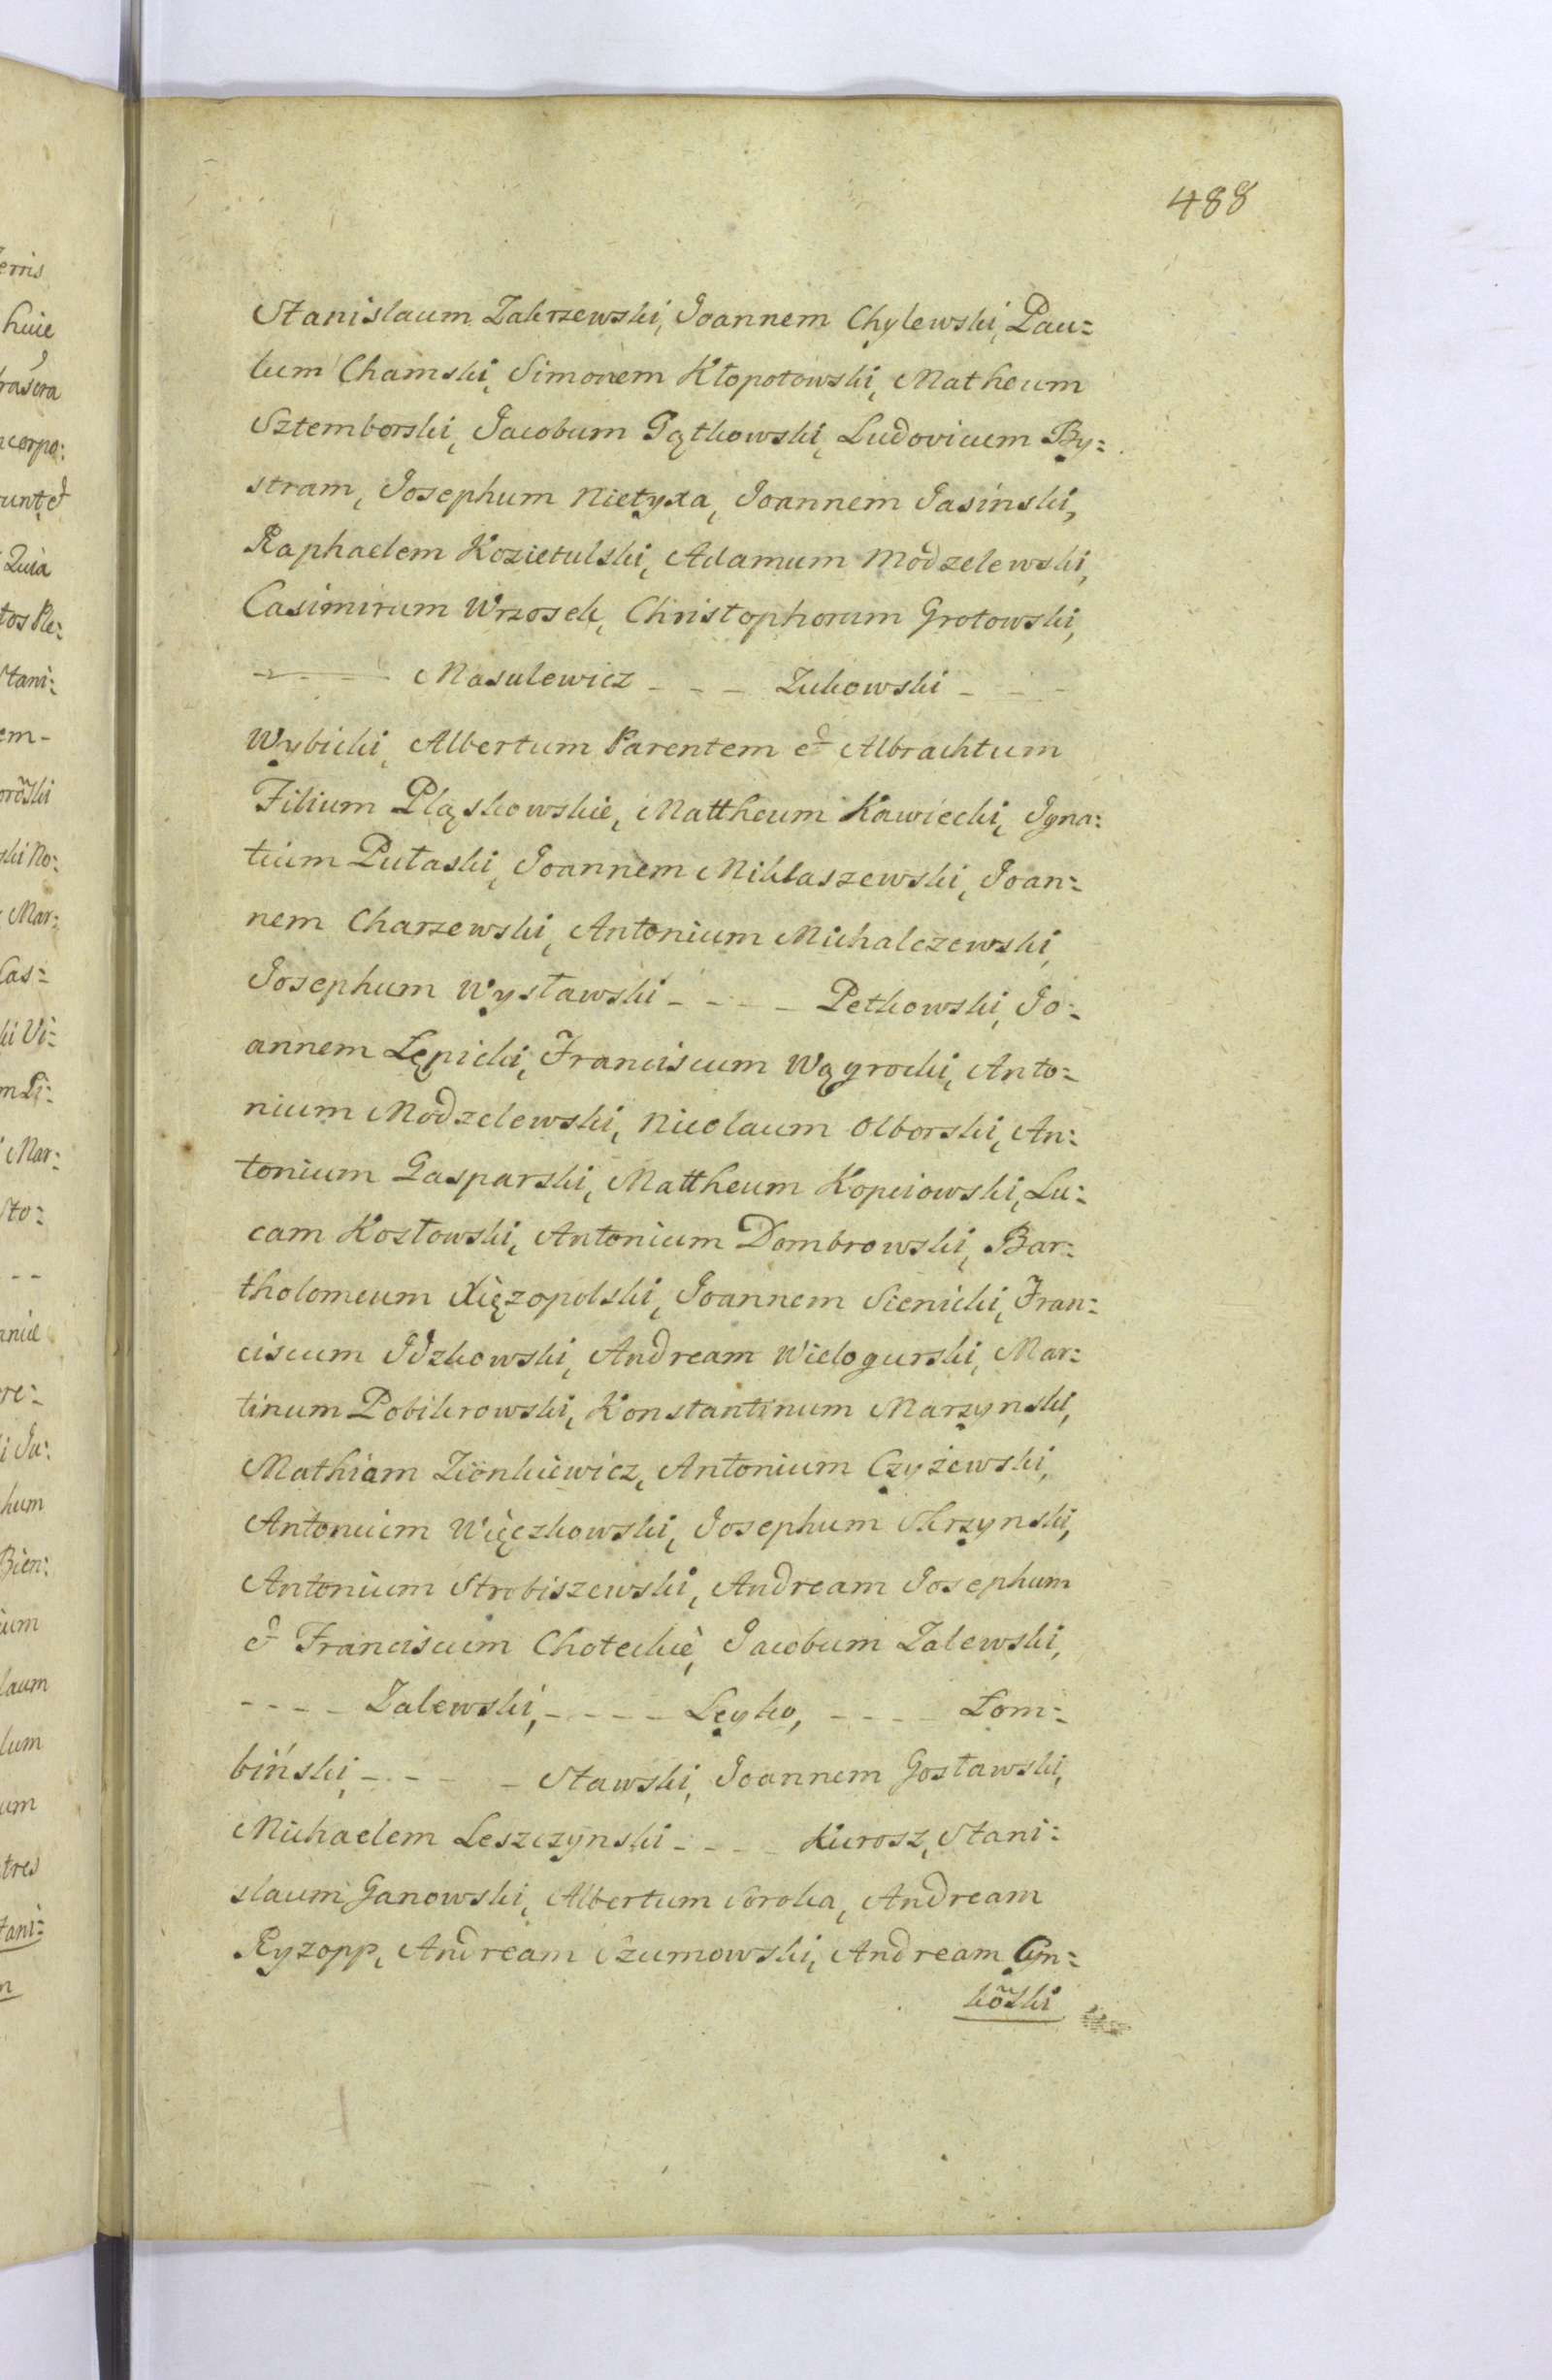 488
Stanislaum Zakrzewski, Joannem Chylewski, Pau:
lum Chamski, Simonem Kłopotowski, Matheum
Sztemborski, Jacobum Pątkowski, Ludovicum By:
stram, Josephum Nietyxa, Joannem Jasinski,
Raphaelem Kozietulski, Adamum Modzelewski,
Casimirum Wrzosek, Christophorum Grotowski,
- - - - Masulewicz - - - Zukowski - - -
Wybicki, Albertum Parentem et Albrachtum
Filium Pląskowskie, Mattheum Kawiecki, Igna:
tium Pułaski, Joannem Miklaszewski, Joan:
nem Charzewski, Antonium Michalczewski,
Josephum Wysławski - - - - Petkowski, Jo:
annem Lępicki, Franciscum Wągrocki, Anto:
nium Modzelewski, Nicolaum Olborski, An:
tonium Gasparski, Mattheum Kopciowski, Lu:
cam Kosłowski, Antonium Dombrowski, Bar:
tholomeum Xiężopolski, Joannem Sienicki, Fran:
ciscum Idzkowski, Andream Wielogurski, Mar:
tinum Pobikrowski, Konstantinum Marzynski,
Mathiam Zionkiewicz, Antonium Czyżewski,
Antonium Więczkowski, Josephum Skrzynski,
Antonium Strobiszewski, Andream Josephum
et Franciscum Choteckie, Jacobum Zalewski,
- - - - Zalewski, - - - - Leyko, - - - - Łom:
biński, - - - - Stawski, Joannem Gostawski,
Michaelem Leszczynski - - - - Kurosz, Stani:
slaum Ganowski, Albertum Soroka, Andream
Ryzopp, Andream Szumowski, Andream Cyn:
kõski